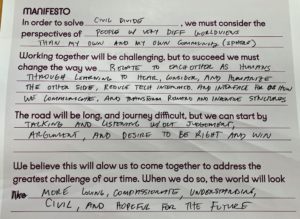 MANIFESTO
In order to solve CIVIL DIVIDE, we must consider the
perspectives of PEOPLE W/ VERY DIFF WORLDVIEWS
THAN MY OWN AND MY OWN COMMUNITY (SPHERE)
Working together will be challenging, but to succeed we must
change the way we RELATE TO EACH OTHER AS HUMANS
THROUGH LEARNING TO HEAR, CONSIDER, AND HUMANIZE
THE OTHER SIDE, REDUCE TECH INTERFACE, AND HOW
WE COMMUNICATE, AND TRANSFORM AND INCENTIVE STRUCTURES
The road will be long, and journey difficult, but we can start by
TALKING AND LISTENING W/ OUT JUDGEMENT,
ARGUMENT, AND DESIRE TO BE RIGHT AND WIN
We believe this will alow us to come together to address the
greatest challenge of our time. When we do so, the world will look
like MORE LOVING, COMPASSIONATE, UNDERSTANDING,
CIVIL, AND HOPEFUL FOR THE FUTURE